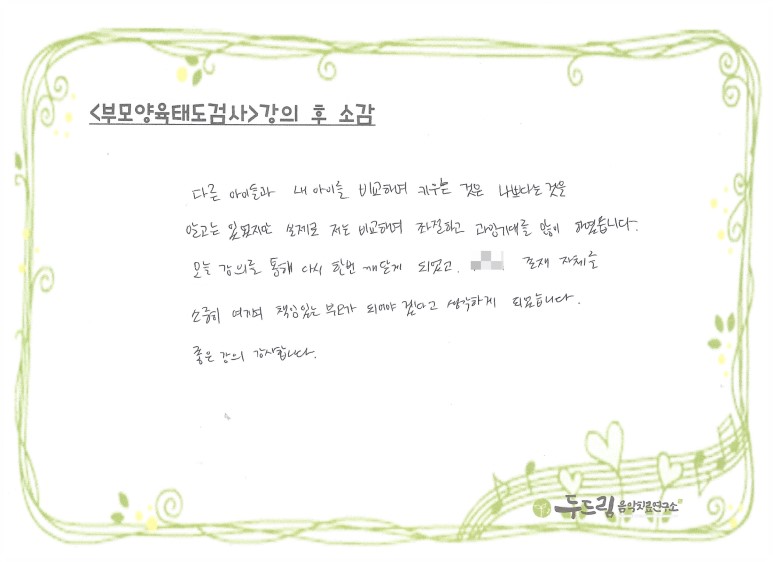 <부모양육태도검사>강의 후 소감
다른 아이들과 내 아이를 비교하며 키우는 것은 나쁘다는 것을
알고는 있었지만 실제로 저는 비교하며 좌절하고 과잉기대를 많이 하였습니다.
오늘 강의를 통해 다시 한번 깨닫게 되었고. 존재 자체를
소중히 여기며 책임있는 부모가 되어야 겠다고 생각하게 되었습니다.
좋은 강의 감사합니다.
두드림 음악치료연구소